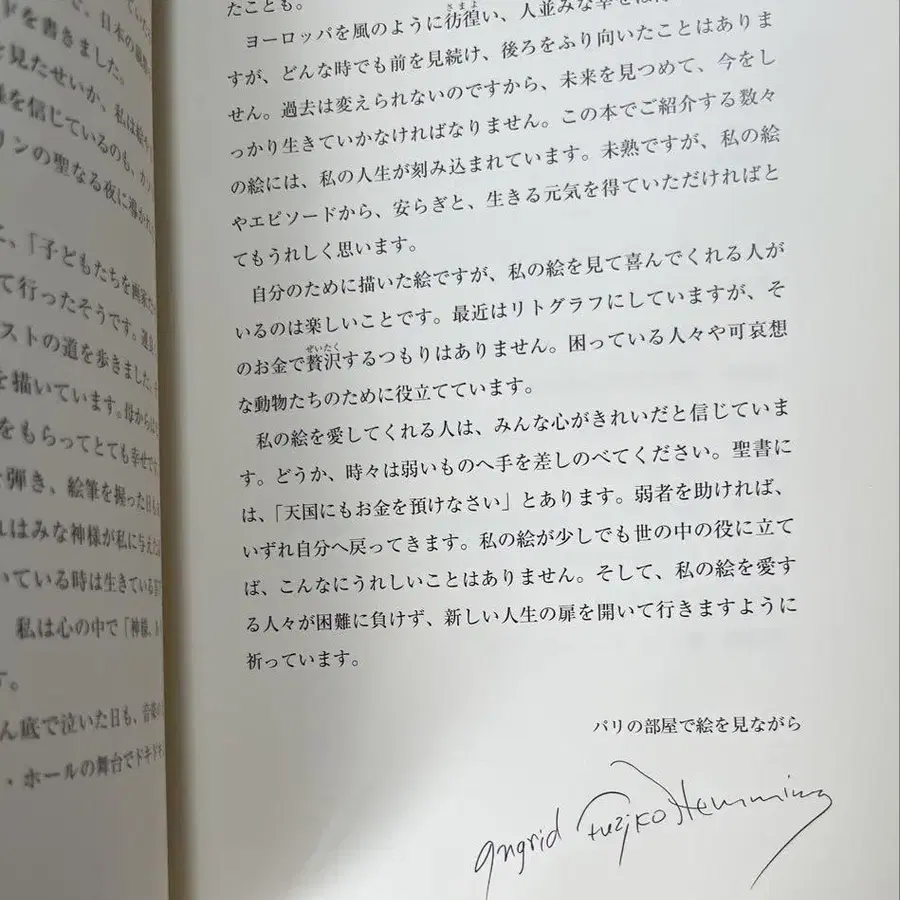 ていて
で、日本の
ドを書きました。
を見たせいか、私は絵や
を信じているのも、か
リンの聖なる夜に導かれ
に、「子どもたちを画家
て行ったそうです。運良
ストの道を歩きました。
を描いています。母からは
をもらってとても幸せで
を弾き、絵筆を握った日も
れはみな神様が私に与えた
いている時は生きている
私は心の中で「神様、
す。
ん底で泣いた日も、音楽
・ホールの舞台でドキド
たことも。
ヨーロッパを風のように彷徨い、人並みな幸せは
さまよ
すが、どんな時でも前を見続け、後ろをふり向いたことはありま
せん。過去は変えられないのですから、未来を見つめて、今をし
っかり生きていかなければなりません。この本でご紹介する数々
の絵には、私の人生が刻み込まれています。未熟ですが、私の絵
やエピソードから、安らぎと、生きる元気を得ていただければと
てもうれしく思います。
自分のために描いた絵ですが、私の絵を見て喜んでくれる人が
いるのは楽しいことです。最近はリトグラフにしていますが、そ
ぜいたく
のお金で贅沢するつもりはありません。困っている人々や可哀想
な動物たちのために役立てています。
私の絵を愛してくれる人は、みんな心がきれいだと信じていま
す。どうか、時々は弱いものへ手を差しのべてください。聖書に
は、「天国にもお金を預けなさい」とあります。弱者を助ければ、
いずれ自分へ戻ってきます。私の絵が少しでも世の中の役に立て
ば、こんなにうれしいことはありません。そして、私の絵を愛す
る人々が困難に負けず、新しい人生の扉を開いて行きますように
祈っています。
パリの部屋で絵を見ながら
Ingrid Fuzjko Hemming